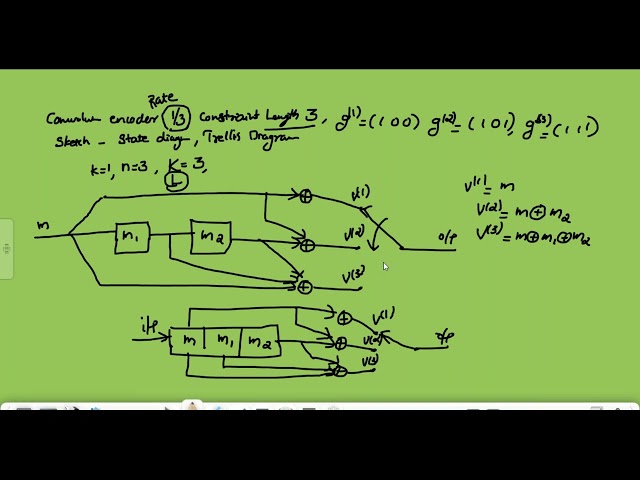 Rate
Convolun encoder 1/3 Constraint Length 3, g(1)=(1 0 0) g(2)=(1 0 1), g(3)=(1 1 1)
Sketch - State diag, Trellis Diagram
k=1, n=3, K=3,
L
V(1)=m
V(2)=m⊕m2
V(3)=m⊕m1⊕m2
m
m1
m2
⊕
⊕
⊕
V(1)
V(2)
V(3)
o/p
i/p
m
m1
m2
⊕
⊕
⊕
V(1)
V(2)
V(3)
o/p